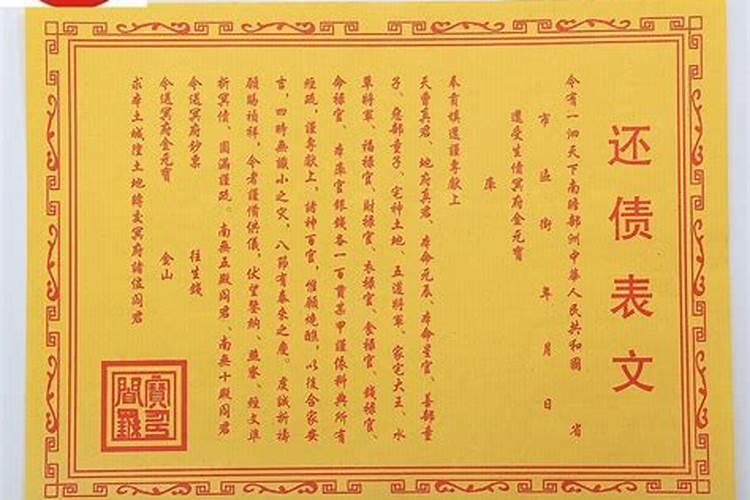 还债表文
今有一泗天下南瞻部洲中華人民共和國 省
市 區 街 年 月 日
還受生債冥府金元寶
庫
奉肯填還謹專獻上
天曹真君、地府真君、本命元辰、本命星官、善部童
子、惡部童子、宅神土地、五道將軍、家宅大王、水
草將軍、福禄官、財禄官、衣禄官、食禄官、錢禄官、
命禄官、本庫官銀錢各一百貫某甲謹依科典所有
經疏,謹專獻上,諸神百官,惟願燒醮,以後合家安
吉,四時無識小之灾,八節有泰來之慶。虔誠祈禱
願賜禎祥,今者謹備供儀,伏望鑒納、燕寥、經文準
折冥債、圓滿謹疏。南無五殿阎君、南無十殿阎君
今還冥府鈔票 往生錢
今還冥府金元寶 金山
求本土城隍土地轉交冥府諸位阎君